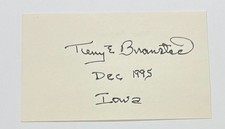 Terry E Branstad
Dec 1995
Iowa